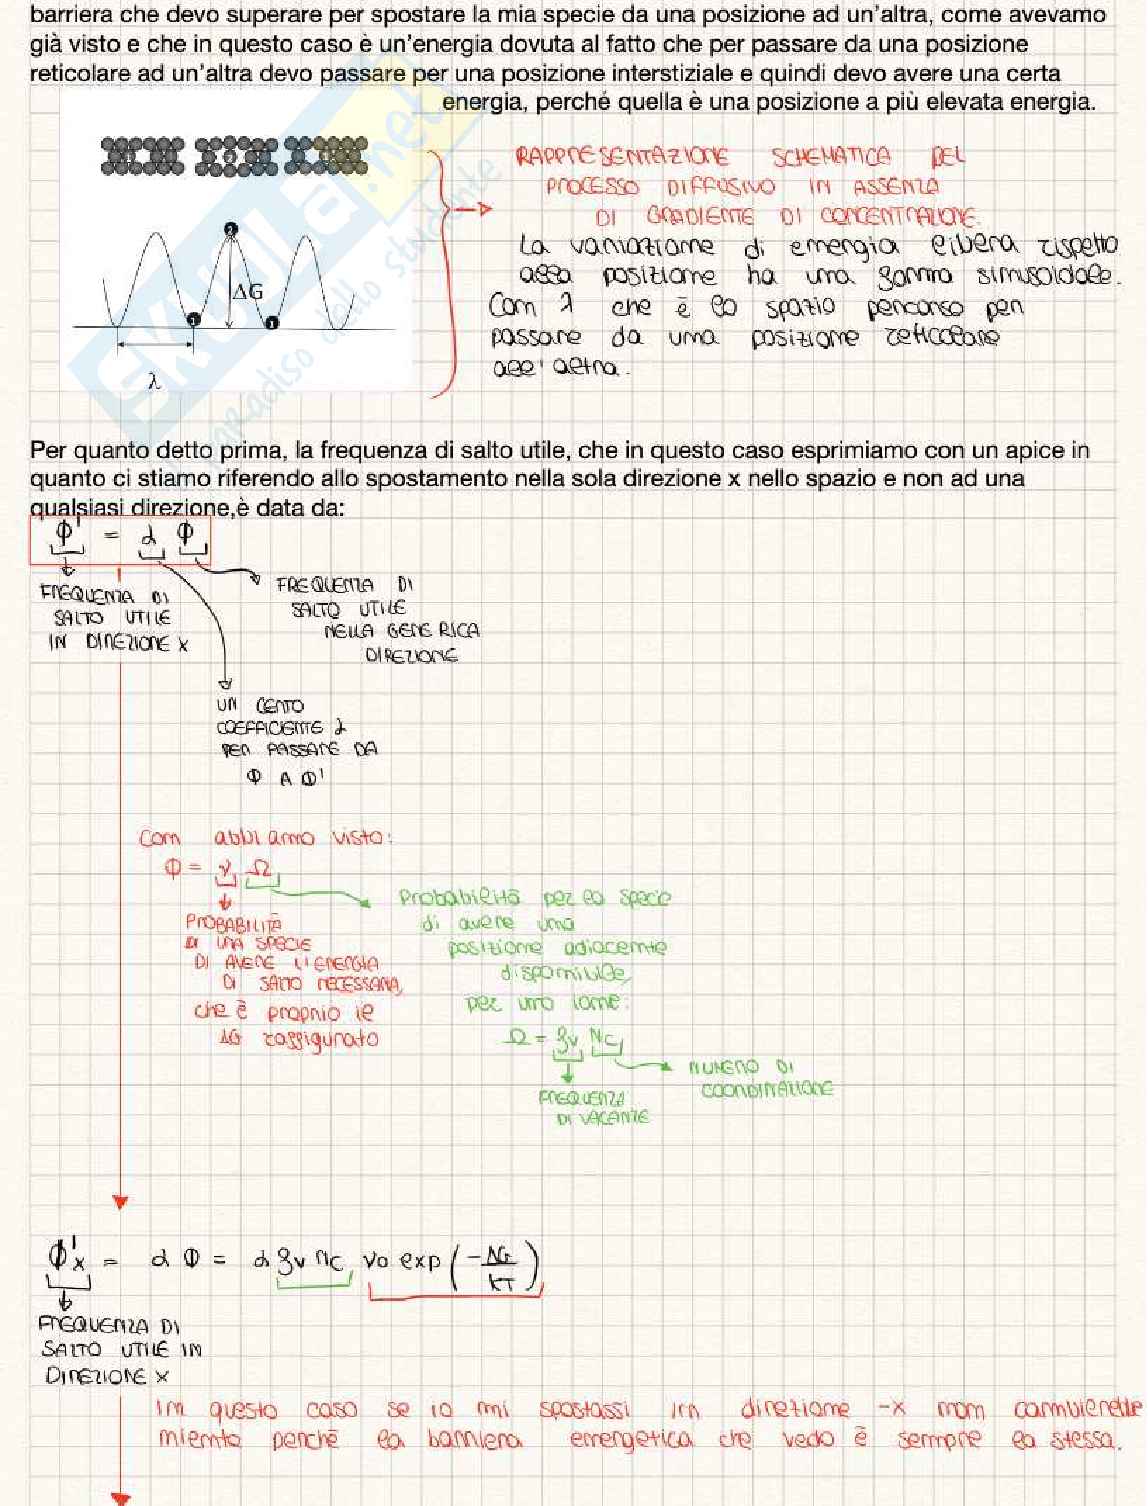 barriera che devo superare per spostare la mia specie da una posizione ad un'altra, come avevamo
già visto e che in questo caso è un'energia dovuta al fatto che per passare da una posizione
reticolare ad un'altra devo passare per una posizione interstiziale e quindi devo avere una certa
energia, perché quella è una posizione a più elevata energia.
RAPPRESENTAZIONE SCHEMATICA DEL
PROCESSO DIFFUSIVO IN ASSENZA
DI GRADIENTE DI CONCENTRAZIONE.
La variazione di energia libera rispetto
alla posizione ha una forma sinusoidale.
Con λ che è lo spazio percorso per
passare da una posizione reticolare
all'altra.
2
ΔG
1
1
λ
SKUOLA.net
il paradiso dello studente
Per quanto detto prima, la frequenza di salto utile, che in questo caso esprimiamo con un apice in
quanto ci stiamo riferendo allo spostamento nella sola direzione x nello spazio e non ad una
qualsiasi direzione,è data da:
Φ' = α Φ
FREQUENZA DI
SALTO UTILE
IN DIREZIONE X
FREQUENZA DI
SALTO UTILE
NELLA GENERICA
DIREZIONE
UN CERTO
COEFFICIENTE α
PER PASSARE DA
Φ A Φ'
Com abbiamo visto:
Φ = ν Ω
PROBABILITÀ
DI UNA SPECIE
DI AVERE L'ENERGIA
DI SALTO NECESSARIA,
che è proprio il
ΔG raffigurato
Probabilità per la specie
di avere una
posizione adiacente
disponibile,
per uno ione:
Ω = fv Nc
NUMERO DI
COORDINAZIONE
FREQUENZA
DI VACANZE
Φ'x = α Φ = α fv nc ν0 exp (-ΔG/KT)
FREQUENZA DI
SALTO UTILE IN
DIREZIONE X
In questo caso se io mi spostassi in direzione -x non cambierebbe
niente perché la barriera energetica che vedo è sempre la stessa.